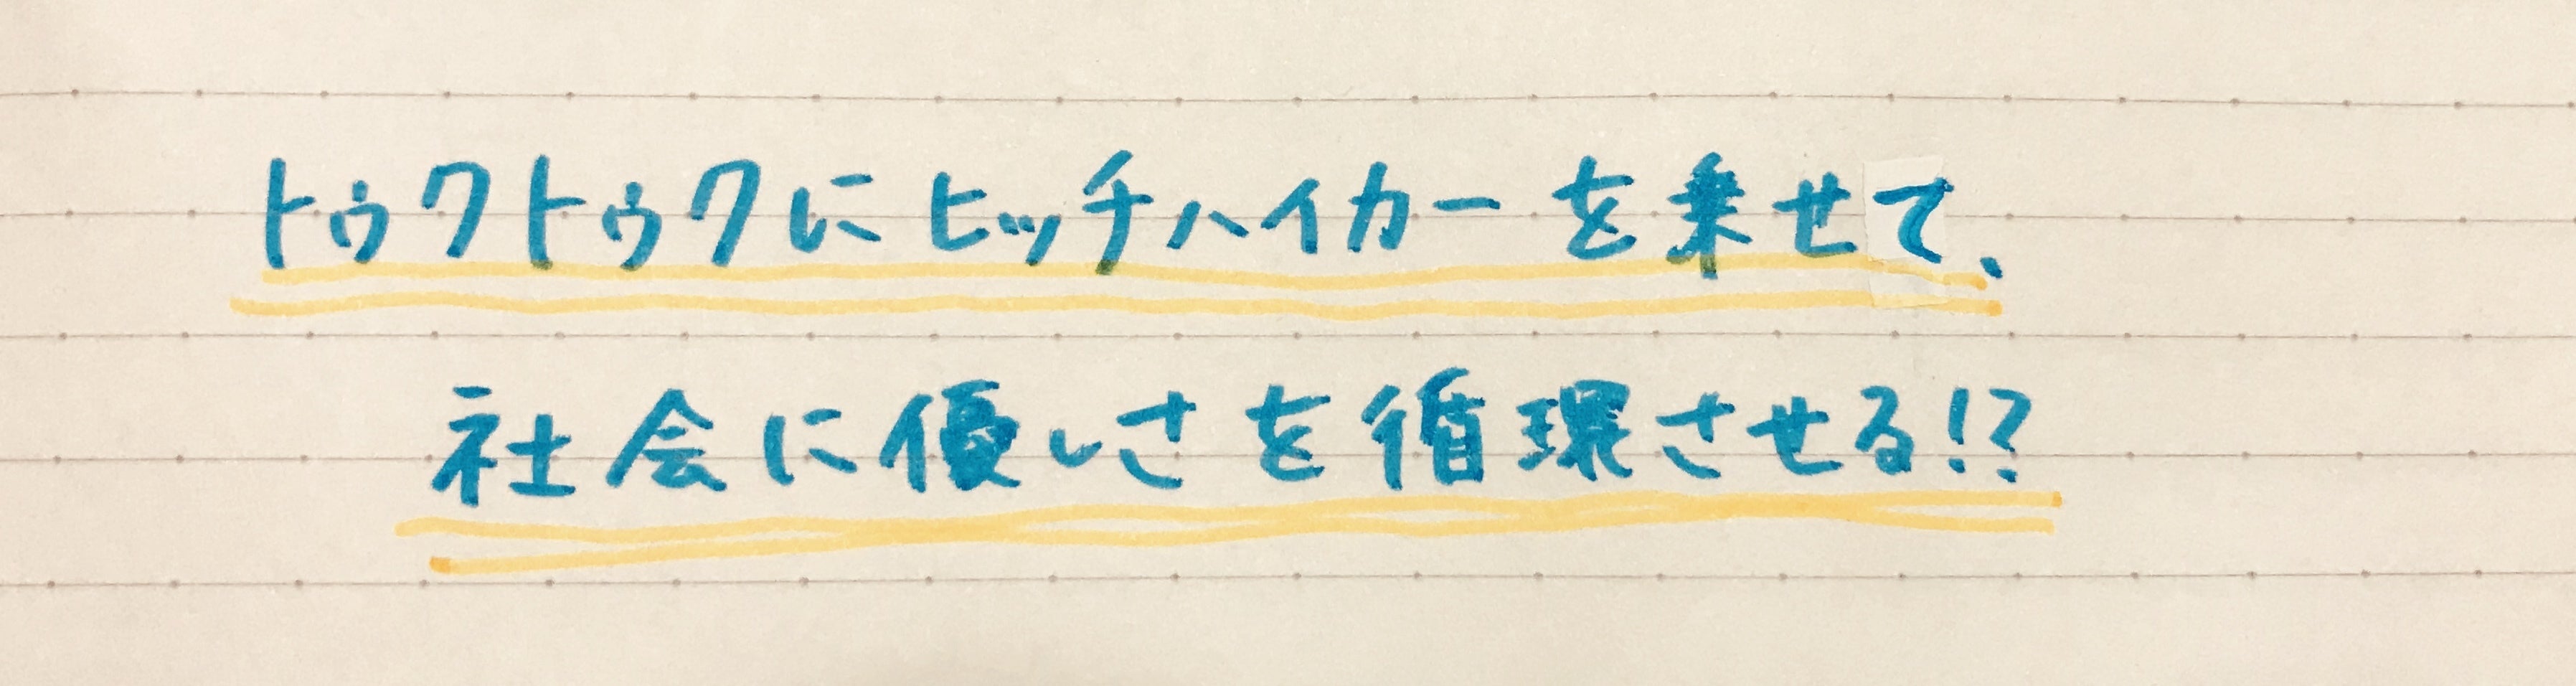 トゥクトゥクにヒッチハイカーを乗せて、
社会に優しさを循環させる!?